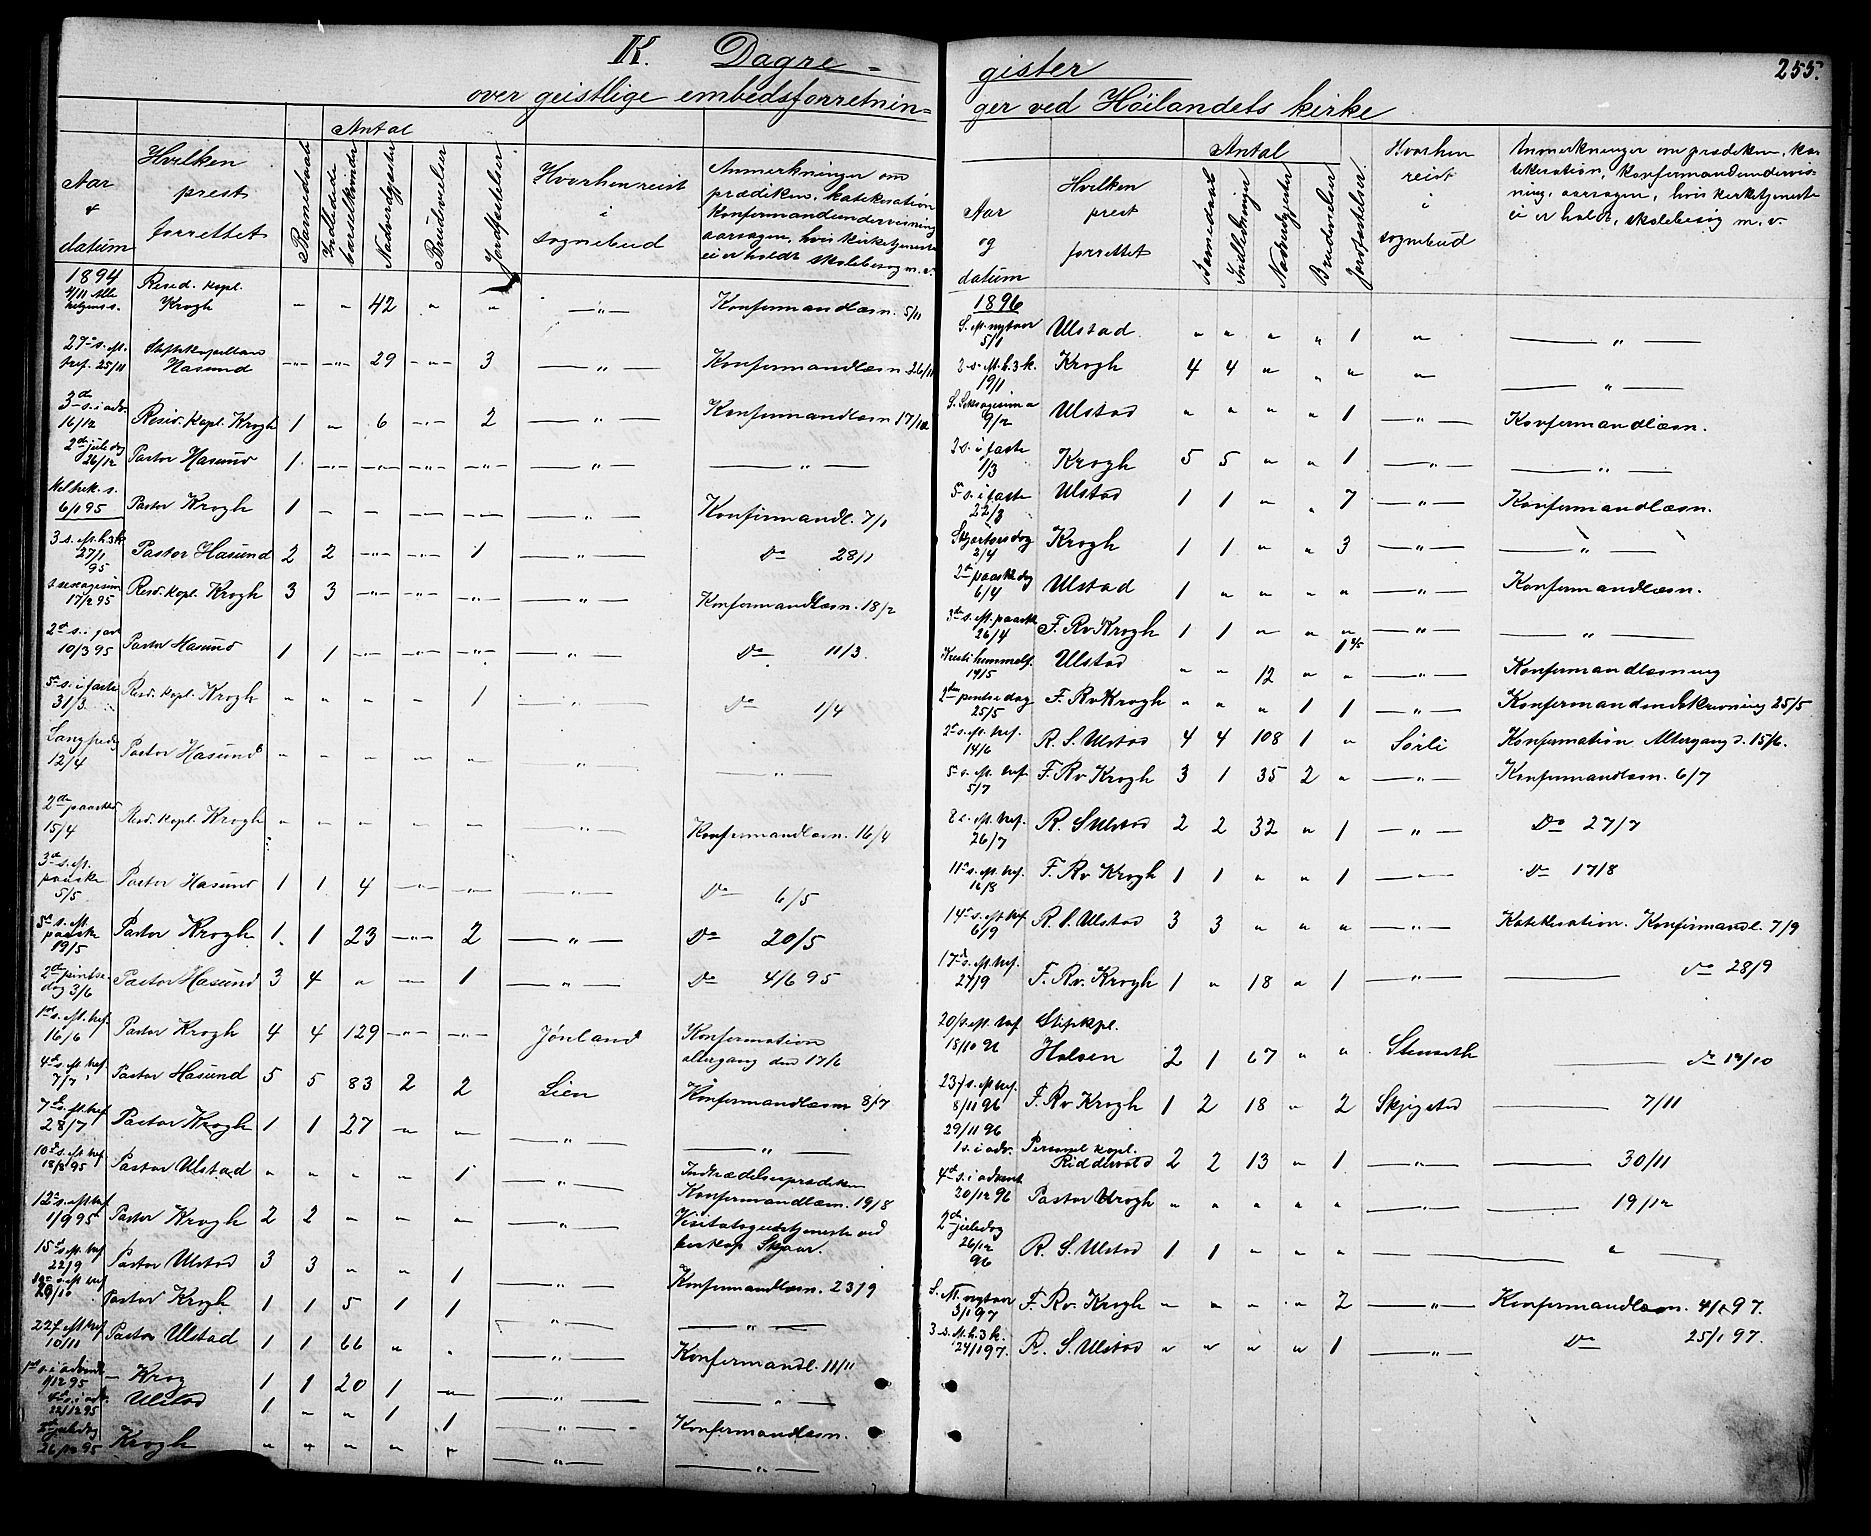 K. Dagre-
gister
255.
over geistlige embedsforretnin=
ger ved Höilandets kirke
Aar & datum
Hvilken prest forrettet
Antal
Barnedaab
Indledede barselkvinder
Nadverdgjester
Brudevielser
Jordfæstelser
Hvorhen reist i sognebud
Anmerkninger om
prædiken, katekisation
Konfirmandundervisning
aarsagen, hvis kirketjeneste
ei er holdt skolebesøg m. v.
1894
4/11 Alle helgens s. Resid. kapl. Krogh " " 42 " " —"— Konfirmandlæsn. 5/11
27de s. eft. tref. 25/11 Stiftskapellan Hasund —"— —"— 29 —"— 3 —"— Konfirmandlæsn. 26/11
3de s. i adv. 16/12 Resid. kapl. Krogh 1 " 6 —"— 2 —"— Konfirmandlæsn 17/12
2de juledag 26/12 Pastor Hasund 1 —"— —"— —"— —"— —"— —"—
Hel. trek. s. 6/1 95 Pastor Krogh 1 — — —"— —"— —"— Konfirmandl. 7/1
3 s. eft. h.3k. 27/1 95 Pastor Hasund 2 2 —"— —"— 1 —"— Do 28/1
s. sexagesim 17/2 95 Resid. kapl. Krogh 3 3 —"— —"— —"— —"— Konfirmandlæsn. 18/2
2de s. i faste 10/3 95 Pastor Hasund 1 1 —"— —"— —"— —"— Do 11/3.
5te s. i faste 31/3 Resd. kapl. Krogh " " " " 1 —"— Do 1/4
Langfredag 12/4 Pastor Hasund " " " " " —"— —"—
2den paaskedag 15/4 Resd. kapl. Krogh " " " " " —"— Konfirmandlæsn. 16/4
3de s. eft. paaske 5/5 Pastor Hasund 1 1 4 —"— —"— —"— Do 6/5
5te s. eft. paaske 19/5 Pastor Krogh 1. 1 23 —"— 2 —"— Do 20/5
2den pintsedag 3/6 Pastor Hasund 3 4 " —"— 1 —"— Do 4/6 95
1ste s. eft. tref. 16/6 Pastor Krogh 4 4 129 —"— —"— Jörlænd Konfirmation
altergang den 17/6
4de s. eft. tref. 7/7 Pastor Hasund 5 5 83 2 2 Lien Konfirmandlæsn 8/7
7de s. eft. tref 28/7 Pastor Krogh 1 1 27 " " —"— —"—
10de s. eft. tref 18/8 95 Pastor Ulstad " " " " 1 —"— Indtrædelsesprædiken
Konfirmandlæsn. 19/8
12te s. eft. tref 1/9 95 Pastor Krogh 2 2 " " " —"— Visitatsgudstjeneste ved
biskop Skaar.
15de s. eft. tref 22/9 Pastor Ulstad 3 3 " " 1 —"— Konfirmandlæsn. 23/9
s. eft. tref 29/10 Pastor Krogh 1 1 5 1 1 —"— —"—
22 s. eft. tref 10/11 Pastor Ulstad 1 1 66 " " —"— Konfirmandl. 11/11
1ste s. i advent 1/12 95 — Krog 1 1 20 1 " —"— —"—
4de s. i adv. 22/12 95 Ulstad 1 " " 1 1 —"— Konfirmandlæsn.
2de juledag 26/12 95 Krogh " " " " " —"— —"—
Aar og datum
Hvilken prest forrettet
Antal
Barnedaab
Indledninger
Nadvergjester
Brudevielser
Jordfæstelser
Hvorhen reist i sognebud
Anmerkninger om prædiken, ka-
tekisation, konfirmandundervis-
ning, aarsagen, hvis kirketjeneste
ei er holdt, skolebesøg m. v.
1896
S. eft. nytaar 5/1 Ulstad " " " " 1 " —"—
2 s. eft. h. 3 k. 19/1 Krogh 4 4 " " " " —"—
S. Seksagesima 9/2 Ulstad " " " " 1 —"— Konfirmandlæsn.
2 s. i faste 1/3 Krogh 5 5 " " 1 —"— —"—
5 s. i faste 22/3 Ulstad 1 1 " " 7 —"— Konfirmandlæsn.
Skjærtorsdag 2/4 Krogh 1 1 " " 3 —"— —"—
2den paaskedag 6/4 Ulstad 1 " " " " —"— Konfirmandlæsn.
3die s. eft. paaske 26/4 F. Rv Krogh 1 1 " " " —"— —"—
Kristi himmelf. 14/5 Ulstad " " 12 " " —"— Konfirmandlæsning
2den pintsedag 25/5 F. Rv Krogh " " " 1 1 —"— Konfirmandindskrivning 25/5
2 s. eft. tref. 14/6 R. S. Ulstad 4 4 108 1 " Sörli Konfirmation Altergang d. 15/6.
5 s. eft. tref 5/7 F. Rv Krogh 3 1 35 2 " —"— Konfirmandlæsn. 6/7
8 s. eft. tref. 26/7 R. S Ulstad 2 2 32 " 1 —"— Do 27/7
11te s. eft. tref. 16/8 F. Rv Krogh 1 1 " " 1 —"— Do 17/8
14de s. eft. tref 6/9 R. S. Ulstad 3 3 " " " —"— Katekisation. Konfirmandl. 7/9
17de s. eft. tref. 27/9 F. Rv. Krogh 1 " 18 " 1 —"— —— Do 28/9
20 s. eft. tref 18/10 96 Stiftskpl. Halsen 2 1 67 " " —— Do 19/10
23 s. eft. tref. 8/11 96 F. Rv Krogh 1 2 18 " 2 Skjegstad —— 7/11
29/11 96 1 s. i adv. Personel kapl. Riddervold 2 2 13 " 1 —"— —— 30/11
4de s. i advent 20/12 96 Pastor Krogh " " " " " —"— —— 19/12
2den juledag 26/12 96 R. S. Ulstad 1 1 " " " —— "
S. eft. nytaar 3/1 97 F. Rv. Krogh " " " " 2 —"— Konfirmandlæsn. 4/1 97.
3 s. eft. h. 3 k. 24/1 97. R. S. Ulstad " " " " 1 —"— Do 25/1 97.